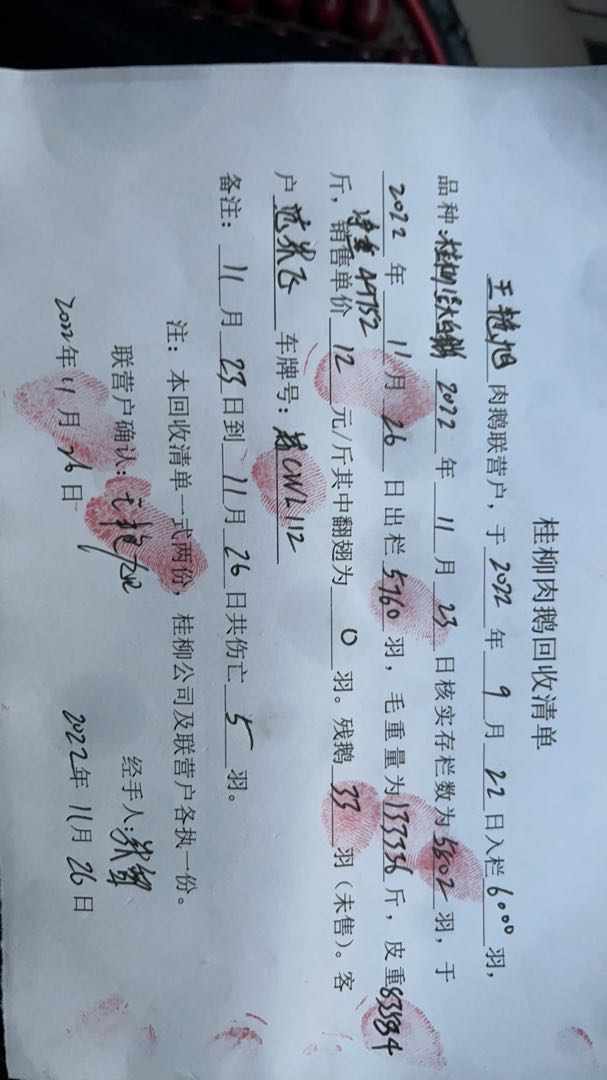 桂柳肉鹅回收清单
王艳旭肉鹅联营户，于2022年9月22日入栏6000羽，
品种：桂柳 2022年11月23日核实存栏数为5802羽，于
2022年11月26日出栏5760羽，毛重量为133336斤，皮重83584
净重49752
斤，销售单价12元/斤其中翻翅为0羽。残鹅33羽（未售）。客
户 飞 车牌号：CWL112
备注：11月23日到11月26日共伤亡5羽。
注：本回收清单一式两份，桂柳公司及联营户各执一份。
联营户确认： 经手人：
2022年11月26日 2022年11月26日